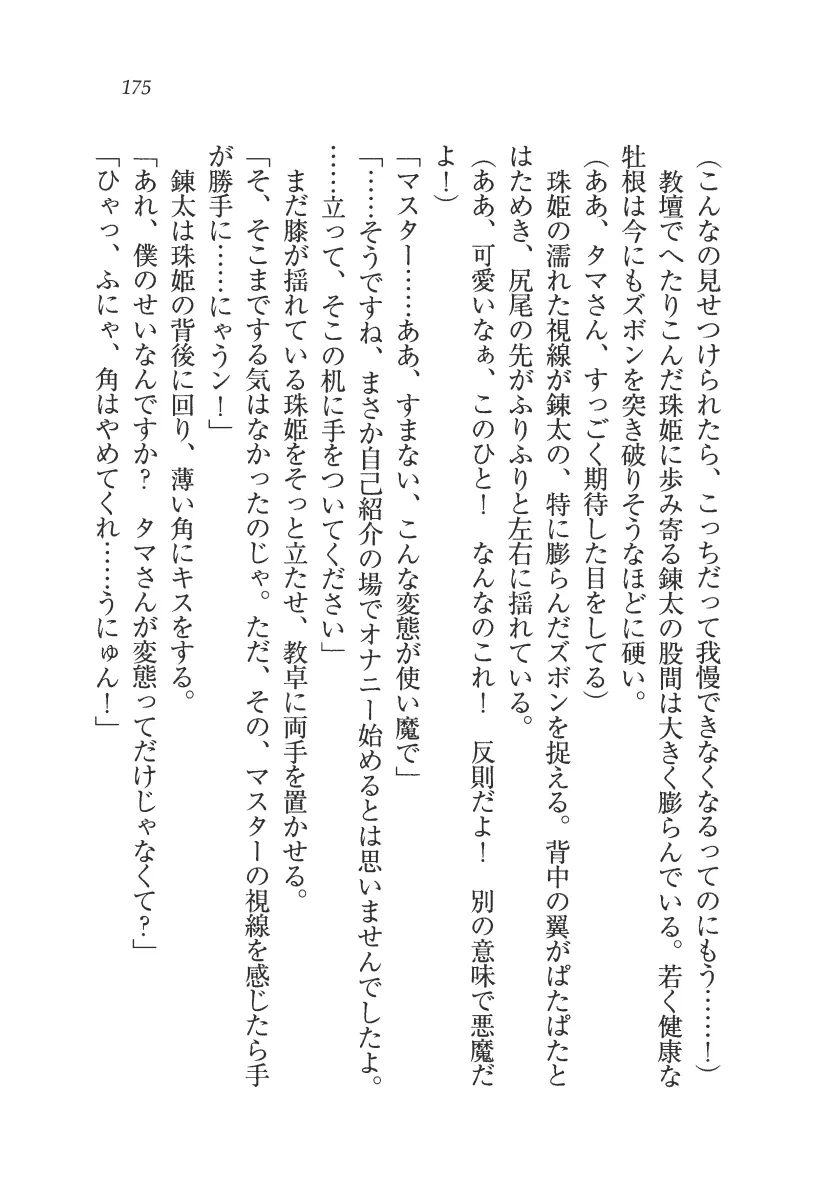 175
(こんなの見せつけられたら、こっちだって我慢できなくなるってのにもう……！)
　教壇でへたりこんだ珠姫に歩み寄る錬太の股間は大きく膨らんでいる。若く健康な
牡根は今にもズボンを突き破りそうなほどに硬い。
(ああ、タマさん、すっごく期待した目をしてる)
　珠姫の濡れた視線が錬太の、特に膨らんだズボンを捉える。背中の翼がぱたぱたと
はためき、尻尾の先がふりふりと左右に揺れている。
(ああ、可愛いなぁ、このひと！　なんなのこれ！　反則だよ！　別の意味で悪魔だ
よ！)
「マスター……ああ、すまない、こんな変態が使い魔で」
「……そうですね、まさか自己紹介の場でオナニー始めるとは思いませんでしたよ。
……立って、そこの机に手をついてください」
　まだ膝が揺れている珠姫をそっと立たせ、教卓に両手を置かせる。
「そ、そこまでする気はなかったのじゃ。ただ、その、マスターの視線を感じたら手
が勝手に……にゃうン！」
　錬太は珠姫の背後に回り、薄い角にキスをする。
「あれ、僕のせいなんですか？　タマさんが変態ってだけじゃなくて？」
「ひゃっ、ふにゃ、角はやめてくれ……うにゅん！」